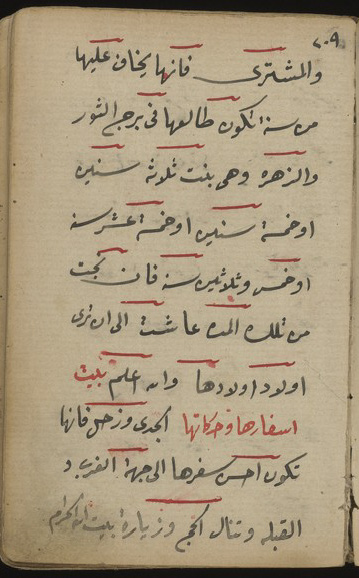 ٢٠٩
والمشترى فانها يخاف عليها
من سنة اتكون طالعها فى برجع الثور
والزهره وهى بنت ثلاثة سنين
او خمسة سنين او خمسة عشر سنه
او خمس وثلاثين سنه فان نجت
من تلك المده عاشت الى ان ترى
اولاد اولادها والله اعلم بيت
اسفارها وحركاتها الجدى وزحل فانها
تكون احسن سفرها الى جهة الغرب و
القبله وتنال الحج وزيارة بيت الله الحرام